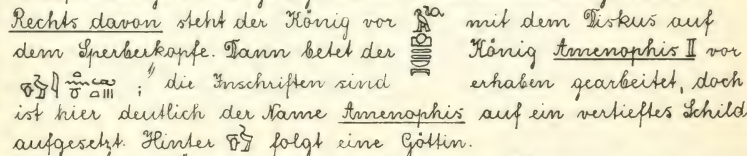 Rechts davon steht der König vor mit dem Diskus auf
dem Sperberkopfe. Dann betet der König Amenophis II vor
; die Inschriften sind erhaben gearbeitet, doch
ist hier deutlich der Name Amenophis auf ein vertieftes Schild
aufgesetzt. Hinter folgt eine Göttin.